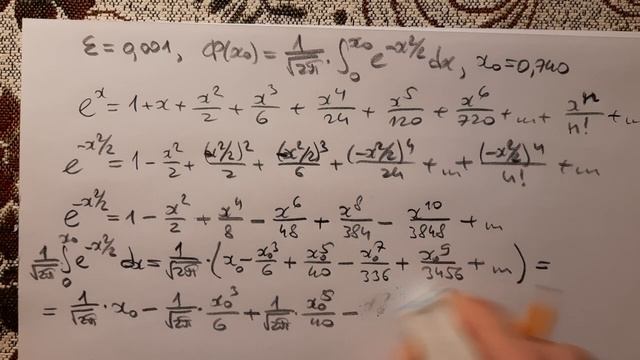 ε = 0,001, Φ(x₀) = 1/√2π · ∫₀^x₀ e^(-x²/2) dx, x₀ = 0,740
e^x = 1 + x + x²/2 + x³/6 + x⁴/24 + x⁵/120 + x⁶/720 + ... + xⁿ/n! + ...
e^(-x²/2) = 1 - x²/2 + (-x²/2)²/2 + (-x²/2)³/6 + (-x²/2)⁴/24 + ... + (-x²/2)ⁿ/n! + ...
e^(-x²/2) = 1 - x²/2 + x⁴/8 - x⁶/48 + x⁸/384 - x¹⁰/3848 + ...
1/√2π ∫₀^x₀ e^(-x²/2) dx = 1/√2π · (x₀ - x₀³/6 + x₀⁵/40 - x₀⁷/336 + x₀⁹/3456 + ...) =
= 1/√2π · x₀ - 1/√2π · x₀³/6 + 1/√2π · x₀⁵/40 -